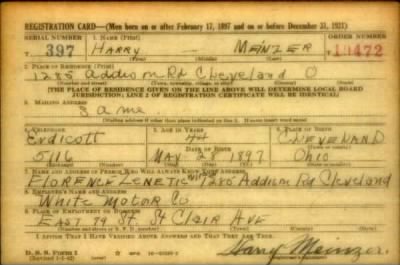 REGISTRATION CARD—(Men born on or after February 17, 1897 and on or before December 31, 1921)
SERIAL NUMBER 1. NAME (Print) ORDER NUMBER
T 397 HARRY — MEINZER 10472
(First) (Middle) (Last)
2. PLACE OF RESIDENCE (Print)
1285 Addison Rd Cleveland O
(Number and street) (Town, township, village, or city) (County) (State)
[THE PLACE OF RESIDENCE GIVEN ON THE LINE ABOVE WILL DETERMINE LOCAL BOARD
JURISDICTION; LINE 2 OF REGISTRATION CERTIFICATE WILL BE IDENTICAL]
3. MAILING ADDRESS
Same
[Mailing address if other than place indicated on line 2. If same insert word same]
4. TELEPHONE 5. AGE IN YEARS 6. PLACE OF BIRTH
Endicott 44 CLEVELAND
DATE OF BIRTH
5116 MAY 28 1897 Ohio
7. NAME AND ADDRESS OF PERSON WHO WILL ALWAYS KNOW YOUR ADDRESS
Florence 1285 Addison Rd Cleveland
8. EMPLOYER'S NAME AND ADDRESS
White Motor Co
9. PLACE OF EMPLOYMENT OR BUSINESS
EAST 79 St. St Clair AVE
(Number and street or R. F. D. number) (Town) (County) (State)
I AFFIRM THAT I HAVE VERIFIED ABOVE ANSWERS AND THAT THEY ARE TRUE.
D. S. S. Form 1
Harry Meinzer